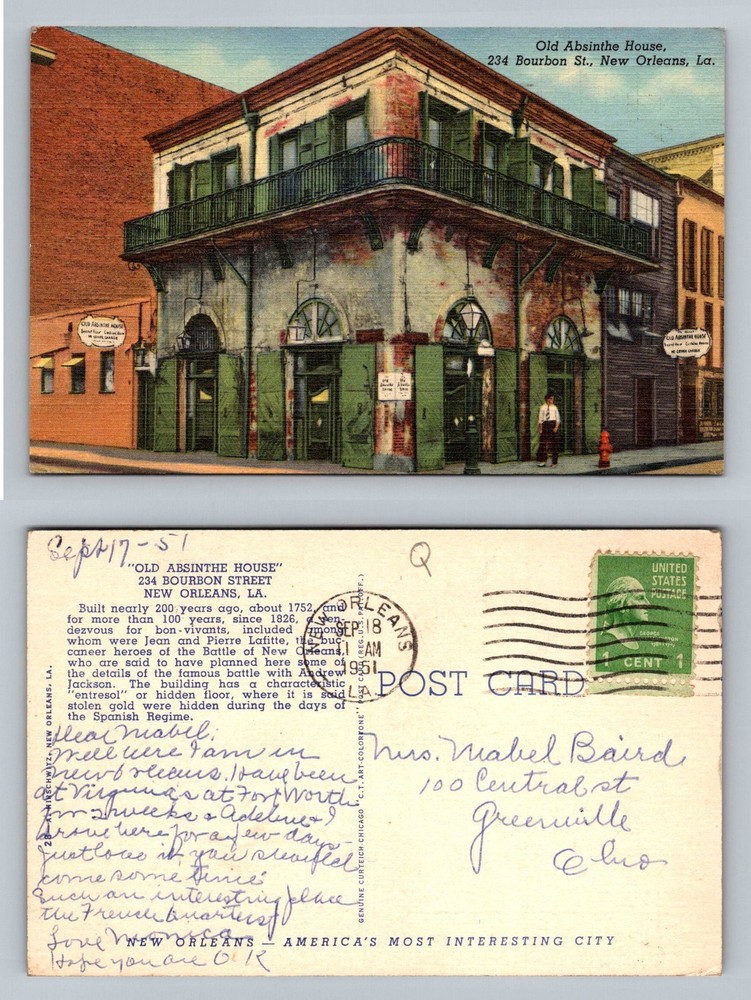 Old Absinthe House,
234 Bourbon St., New Orleans, La.
OLD ABSINTHE HOUSE
OLD ABSINTHE HOUSE
Sept 17-51
Q
"OLD ABSINTHE HOUSE"
234 BOURBON STREET
NEW ORLEANS, LA.
Built nearly 200 years ago, about 1752, and
for more than 100 years, since 1826, a ren-
dezvous for bon-vivants, included among
whom were Jean and Pierre Lafitte, the buc-
caneer heroes of the Battle of New Orleans,
who are said to have planned here some of
the details of the famous battle with Andrew
Jackson. The building has a characteristic
"entresol" or hidden floor, where it is said
stolen gold were hidden during the days of
the Spanish Regime.
Dear Mabel:
Well here I am in
New Orleans. Have been
at Virginia's at Fort Worth
for 2 weeks & Adeline & I
drove here for a few days-
Just love it you should
come some time.
Such an interesting place
the French Quarters
Love Monica
Hope you are O K
A. HIRSCHWITZ, NEW ORLEANS, LA.
GENUINE CURTEICH-CHICAGO "C.T. ART-COLORTONE" POST CARD (REG. U.S. PAT. OFF.)
NEW ORLEANS
SEP 18
AM
1951
LA
UNITED
STATES
POSTAGE
GEORGE
WASHINGTON
1 CENT 1
POST CARD
Mrs. Mabel Baird
100 Central st
Greenville
Ohio
NEW ORLEANS — AMERICA'S MOST INTERESTING CITY